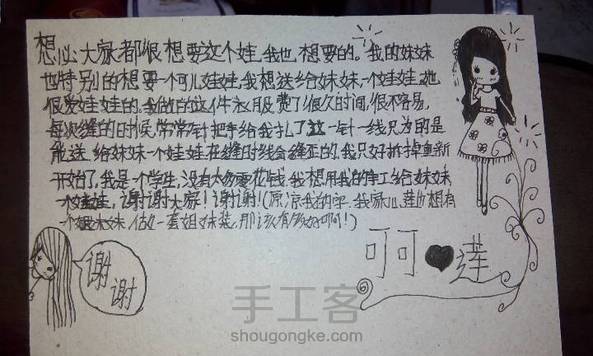 想必大家都很想要这个娃,我也想要的。我的妹妹
也特别的想要一个可儿娃娃,我想送给妹妹一个娃娃,她
很爱娃娃的。我做的这件衣服费了很久时间,很不容易,
每次缝的时候,常常针把手给我扎了,这一针一线只为的是
能送给妹妹一个娃娃,在缝时线会缝歪的,我只好拆掉重新
开始了,我是个学生,没有太多零花钱,我想用我的手工给妹妹
一个娃娃,谢谢大家!谢谢!(原谅我的字,我家心莲也想有
一个姐妹,做一套姐妹装,那该有多好啊!)
谢谢
呵 莲
手工客
shougongke.com